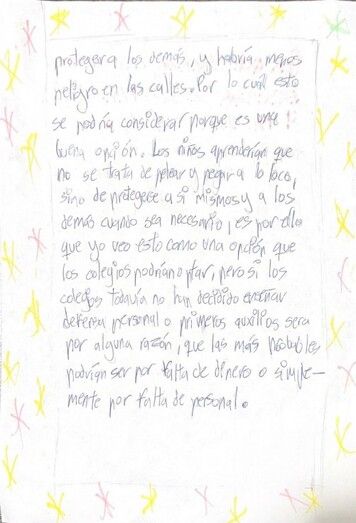 protegera los demás, y habría menos
peligro en las calles. Por lo cual esto
se podría considerar porque es una
buena opción. Los niños aprenderían que
no se trata de pelear y pegar a lo loco,
sino de protegerse a si mismos y a los
demás cuando sea necesario, es por ello
que yo veo esto como una opción que
los colegios podrían optar, pero si los
colegios todavía no han decidido enseñar
defensa personal o primeros auxilios sera
por alguna razón, que las más probables
podrían ser por falta de dinero o simple-
mente por falta de personal.